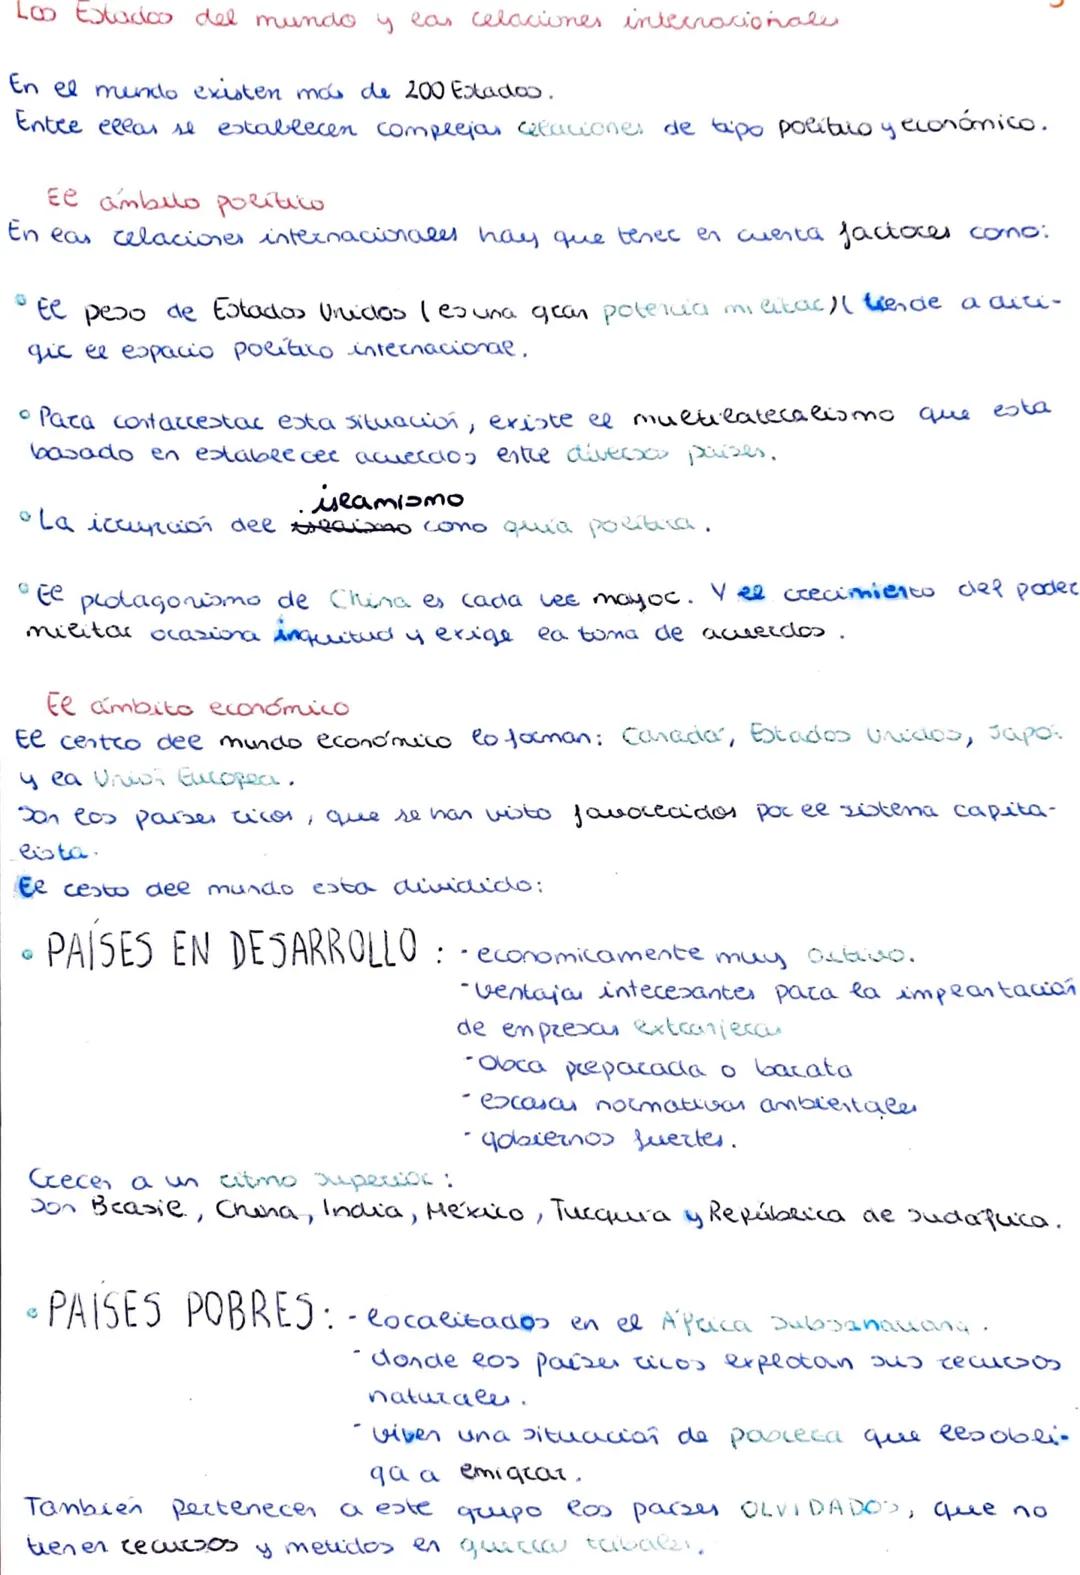 Los Estados del mundo y las relaciones internacionales
En el mundo existen más de 200 Estados.
Entre ellas se establecen complejas relaciones de tipo político y económico.
El ámbito político
En las relaciones internacionales hay que tener en cuenta factores como:
• El peso de Estados Unidos (es una gran potencia militar)( tiende a diri-
gir el espacio político internacional.
• Para contarrestar esta situación, existe el multilateralismo que esta
basado en establecer acuerdos entre diversos países.
islamismo
• La irrupción del como guía política.
• El protagonismo de China es cada vez mayor. Y el crecimiento del poder
militar ocasiona inquitud y exige la toma de acuerdos.
El ámbito económico
El centro del mundo económico lo forman: Canadá, Estados Unidos, Japón
y la Unión Europea.
Son los países ricos, que se han visto favorecidos por el sistema capita-
lista.
El resto del mundo esta dividido:
• PAÍSES EN DESARROLLO : - economicamente muy activo.
- ventajas interesantes para la implantación
de empresas extranjeras
- Obra preparada o barata
- escasas normativas ambientales
- gobiernos fuertes.
Crecen a un ritmo superior :
Son Brasil, China, India, México, Turquía y República de Sudáfrica.
• PAÍSES POBRES: - localitados en el África Subsahariana.
- donde los países ricos explotan sus recursos
naturales.
- viven una situación de pobreza que les obli-
ga a emigrar.
Tanbién pertenecen a este grupo los países OLVIDADOS, que no
tienen recursos y metidos en guerras tribales.